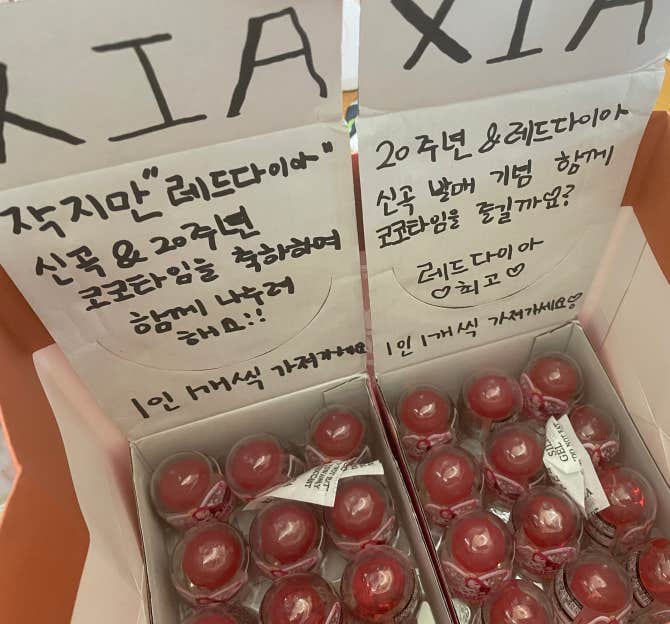 XIA
작지만 "레드다이아"
신곡 & 20주년
코코타임을 축하하여
함께 나누려
해요!!
1인 1개씩 가져가세요
XIA
20주년 & 레드다이아
신곡 발매 기념 함께
코코타임을 즐길까요?
레드다이아
♡최고♡
1인 1개씩 가져가세요♡